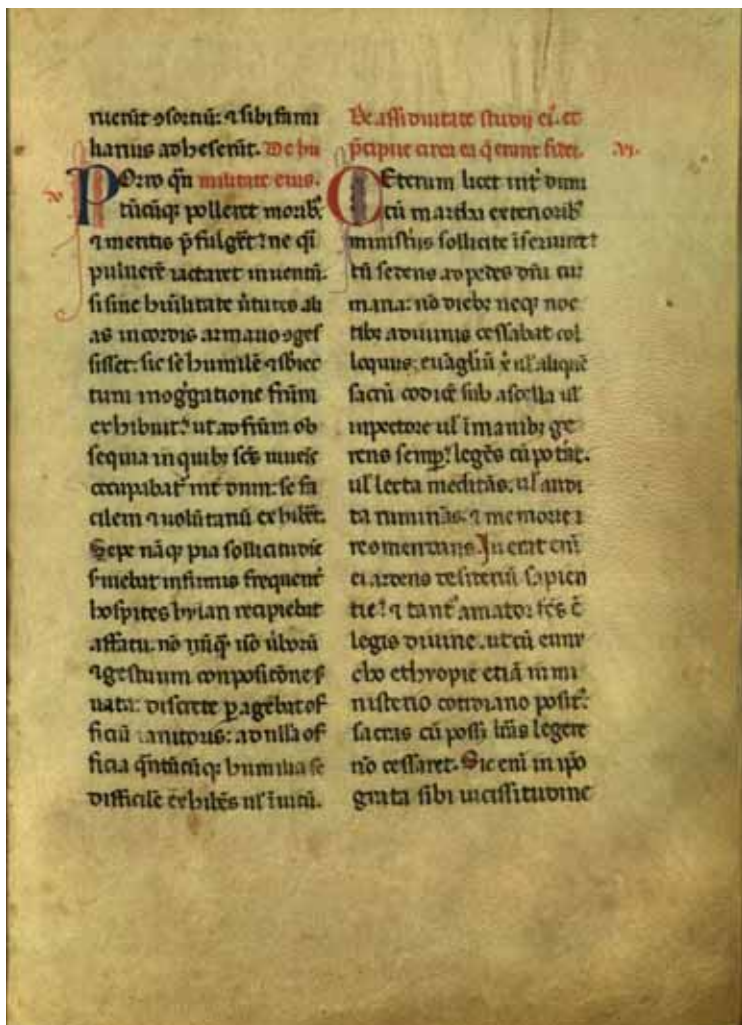 ruerūt ꝯsortiū: ⁊ sibi fami
liarius adheserūt. De hu
v
Orro qn̄ militate eius.
P
tūcūqꝫ polleret moribꝰ
⁊ mentis p̄fulgēt? ne qͥ
puluerē iactaret in uentū.
si sine hūilitate ūtutes ali
as in cordis armario ꝯges
sisset: sic se humilē ⁊ abiec
tum
frm̄
exhibuit? ut ad frūm ob
sequia in quibꝫ
occupabatᷣ int̄ dnum: se fa
cilem ⁊ uolūtariū exhibēt.
Sepe nāqꝫ pia sollicitudīe
s̄uiebat infirmis frequent̄
hospites
recipiebat
affatu. nō
ūborū
⁊ gestuum conpositōne s̄
uata: discrete ꝑagebat of
ficiū ianitoris: ad nulla of
ficia qn̄tūcūqꝫ humilia se
difficilē exhibēs ul̄ īuitū.
De assiduitate studii eiꝰ. et
p̄cipue circa ea q̄ erant fidei.
vi.
CEterum licet int̄dum
cū martha exteriorībꝰ
ministiis sollicite īseruiret?
tū sedens ad pedes dn̄i cū
maria: nō diebꝫ neqꝫ noc
tibꝫ a diuinis cessabat col
loquiis; euāgliū
ul̄ aliquē
sacrū codicē sub ascella ul̄
in pectore ul̄ ī manibꝫ ge
rens semꝑ? legēs cū pot̄at.
ul̄ lecta meditās. ul̄ audi
ta ruminās. ⁊ memorie
Inerat eni
ei ardens desideriū sapien
tie? ⁊ tantꝰ amator
legis diuine. ut cū eunu
cho ethyopie etiā in mi
nisterio cotidiano positꝰ.
sacras cū possꝫ lrās legere
nō cessaret. Sic eni in ip̄o
grata sibi uicissitudine